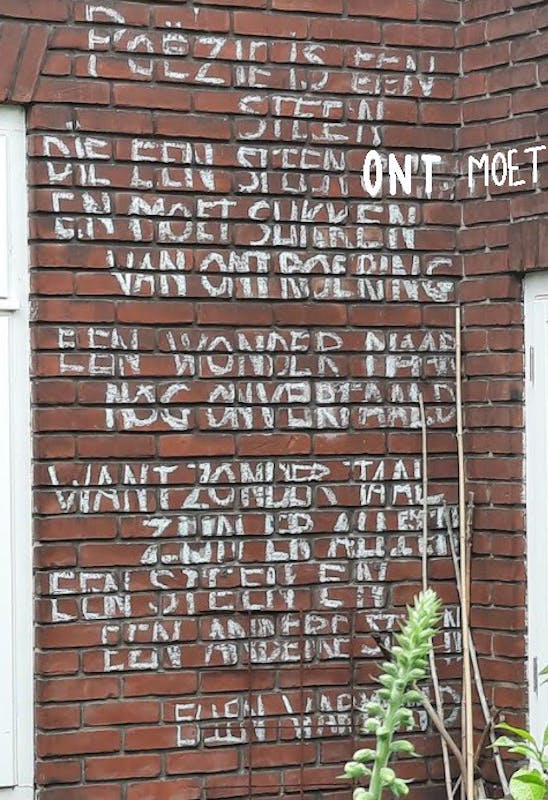 POËZIE IS EEN
STEEN
DIE EEN STEEN ONT MOET
EN MOET SLIKKEN
VAN ONTROERING
EEN WONDER NAAR
NOG ONVERTAALD
WANT ZONDER TAAL
ZIJN ER ALLEEN
EEN STEEN EN
EEN ANDERE STEEN
ELLEN WARMOND